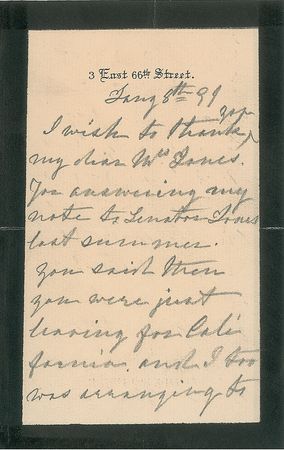 3 East 66th Street.
Jany 8th 91
I wish to thank you
my dear Mrs Jones.
for answering my
note to Senator Jones
last summer.
you said then
you were just
leaving for Cali
fornia. and I too
was arranging to